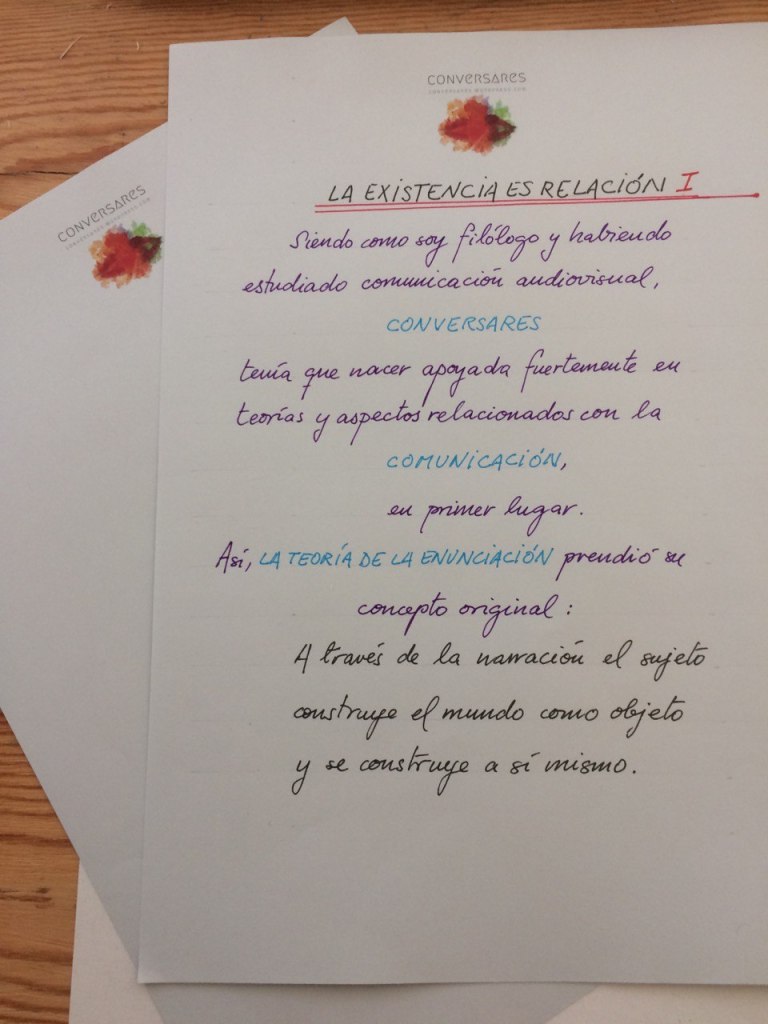 CONVERSARES
CONVERSARES.WORDPRESS.COM
LA EXISTENCIA ES RELACIÓN I
Siendo como soy filólogo y habiendo
estudiado comunicación audiovisual,
CONVERSARES
tenía que nacer apoyada fuertemente en
teorías y aspectos relacionados con la
COMUNICACIÓN,
en primer lugar.
Así, LA TEORÍA DE LA ENUNCIACIÓN prendió su
concepto original:
A través de la narración el sujeto
construye el mundo como objeto
y se construye a sí mismo.
CONVERSARES
CONVERSARES.WORDPRESS.COM